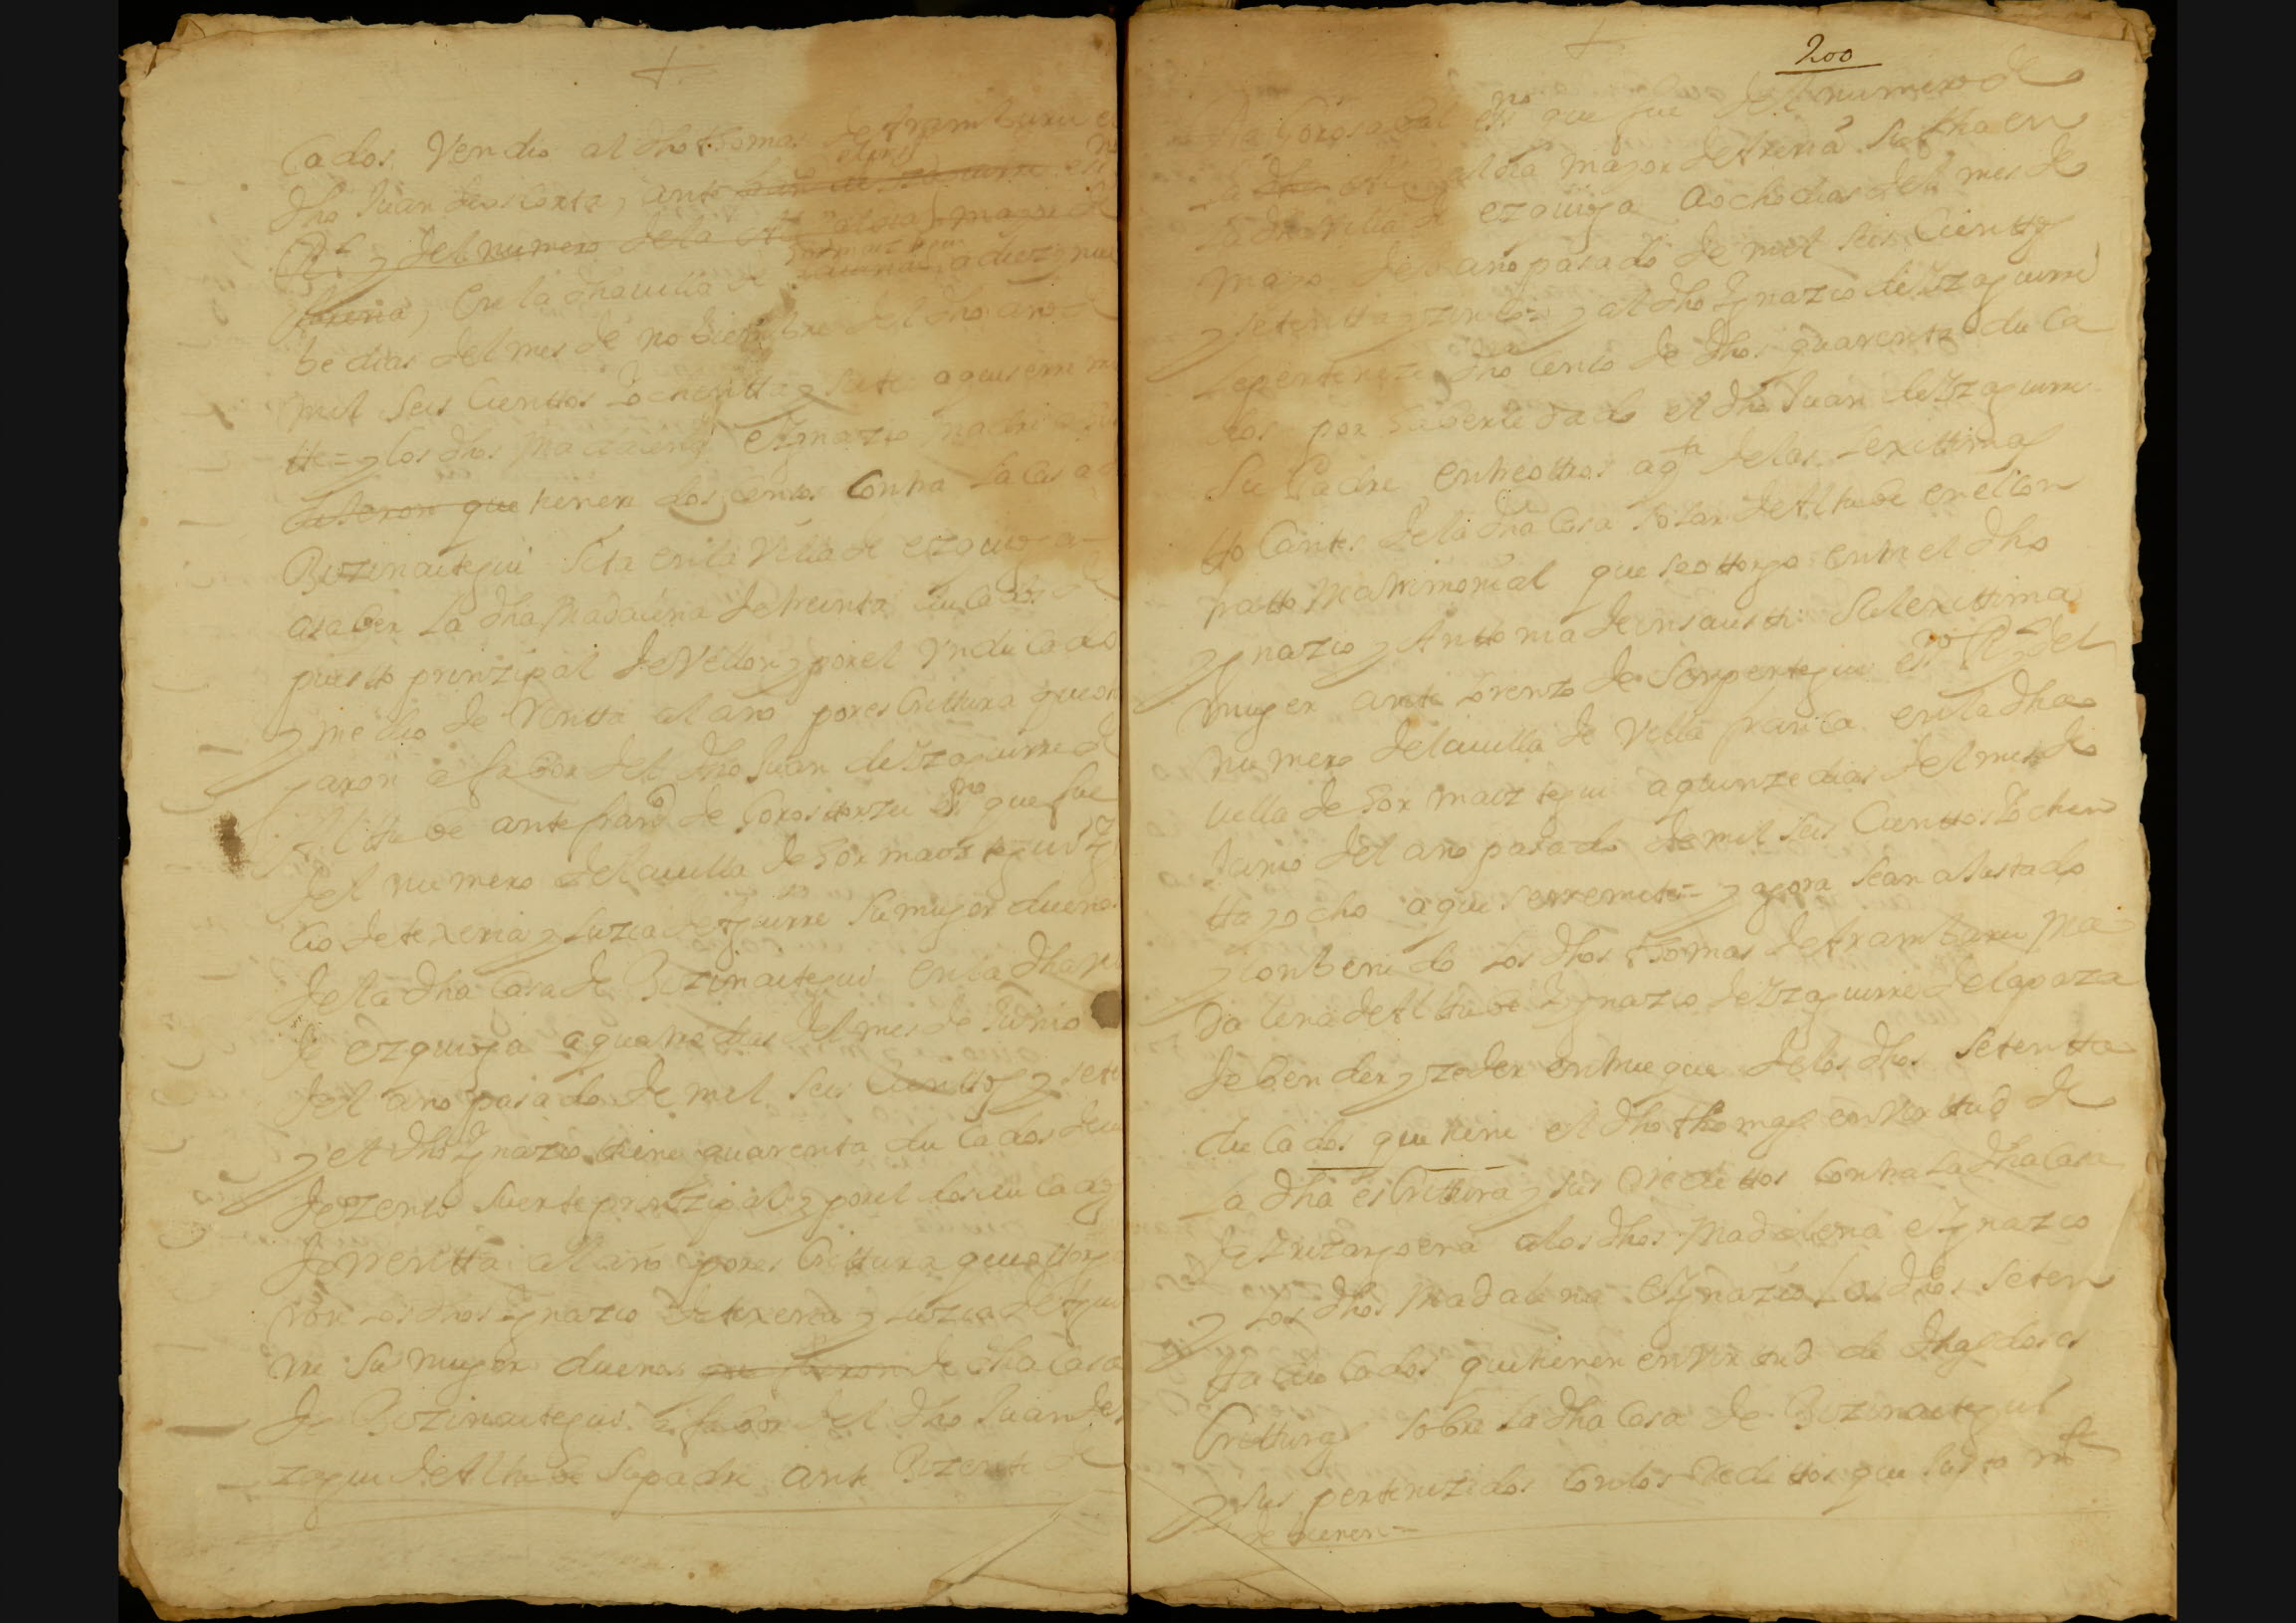 cados Vendio al dho thomas de Aramburu el
dho Juan de oscorta, ante
R.l y del numero de la Alcaldia mayor de
Areria, en la dha villa de a diez y nue
be dias del mes de nobiembre del dho año de
mil seis cienttos y ochentta y siete aqui se rremi
tte= y los dhos Madalena e Ygnazio
que tienen dos censos contra la casa de
Bizinaitegui sita en la Villa de ezquioga
a saber la dha Madalena de treinta ducados de
puestto prinzipal de Vellon y por el Un ducado
y medio de Rentta al año por escrittura que otor
garon a fabor del dho Juan de Yzaguirre de
Alttube ante fran.co de Gorosttorzu es.no que fue
del numero de la villa de Gormaiztegui Ygna
cio de texeria y Luzia de Aguirre su muger dueños
de la dha casa de Bizinaitegui en la dha villa
de ezquioga a quatro dias del mes de Junio
del año pasado de mil seis cienttos y sete
y el dho Ygnazio tiene quarenta ducados de
de zenso suerte prinzipal y por el dos ducados
de Rentta al año por escrittura que ottorga
ron los dhos Ygnazio de texeria y Luzia de Agui
rre su muger dueños que fueron de dha casa
de Bizinaitegui a fabor del dho Juan de Y
zaguirre de Alttube su padre ante Bizente de
200
Gorosabal es.no que fue del numero de
la dha Alcaldia mayor de Areria su fha en
la dha villa de ezquioga a ocho dias del mes de
mayo del año pasado de mil seis cienttos
y setentta y zinco= y al dho Ygnazio de Yzaguirre
le perteneze dho censo de dhos quarenta duca
dos por haberle dado el dho Juan de Yzaguirre
su Padre entre ottros a q.ta de las lexittimas
ttocantes de la dha casa solar de Alttube en el con
tratto Matrimonial que se ottorgo entre el dho
Ygnazio y Anttonia de insausti su lexittima
muger ante Lorenzo de Sorpertegui es.no R.l y del
numero de la villa de Villa franca en la dha
villa de Gormaiztegui a quinze dias del mes de
Junio del año pasado de mil seis cienttos y ochen
tta y ocho a que se rremite= y agora se an ajustado
y conbenido los dhos thomas de Aramburu Ma
dalena de Alttube Ygnazio de Yzaguirre de la paza
de bender y zeder en trueque de los dhos setentta
ducados que tiene el dho thomas en virttud de
la dha escrittura y sus Redittos contra la dha casa
de Arizargoena a los dhos Madalena e Ygnazio
y los dhos Madalena e Ygnazio los dhos seten
tta ducados que tienen en virtud de dhas dos es
critturas sobre la dha casa de Bizinaitegui
y sus pertenezidos con los Redittos que justam.te
se deben=